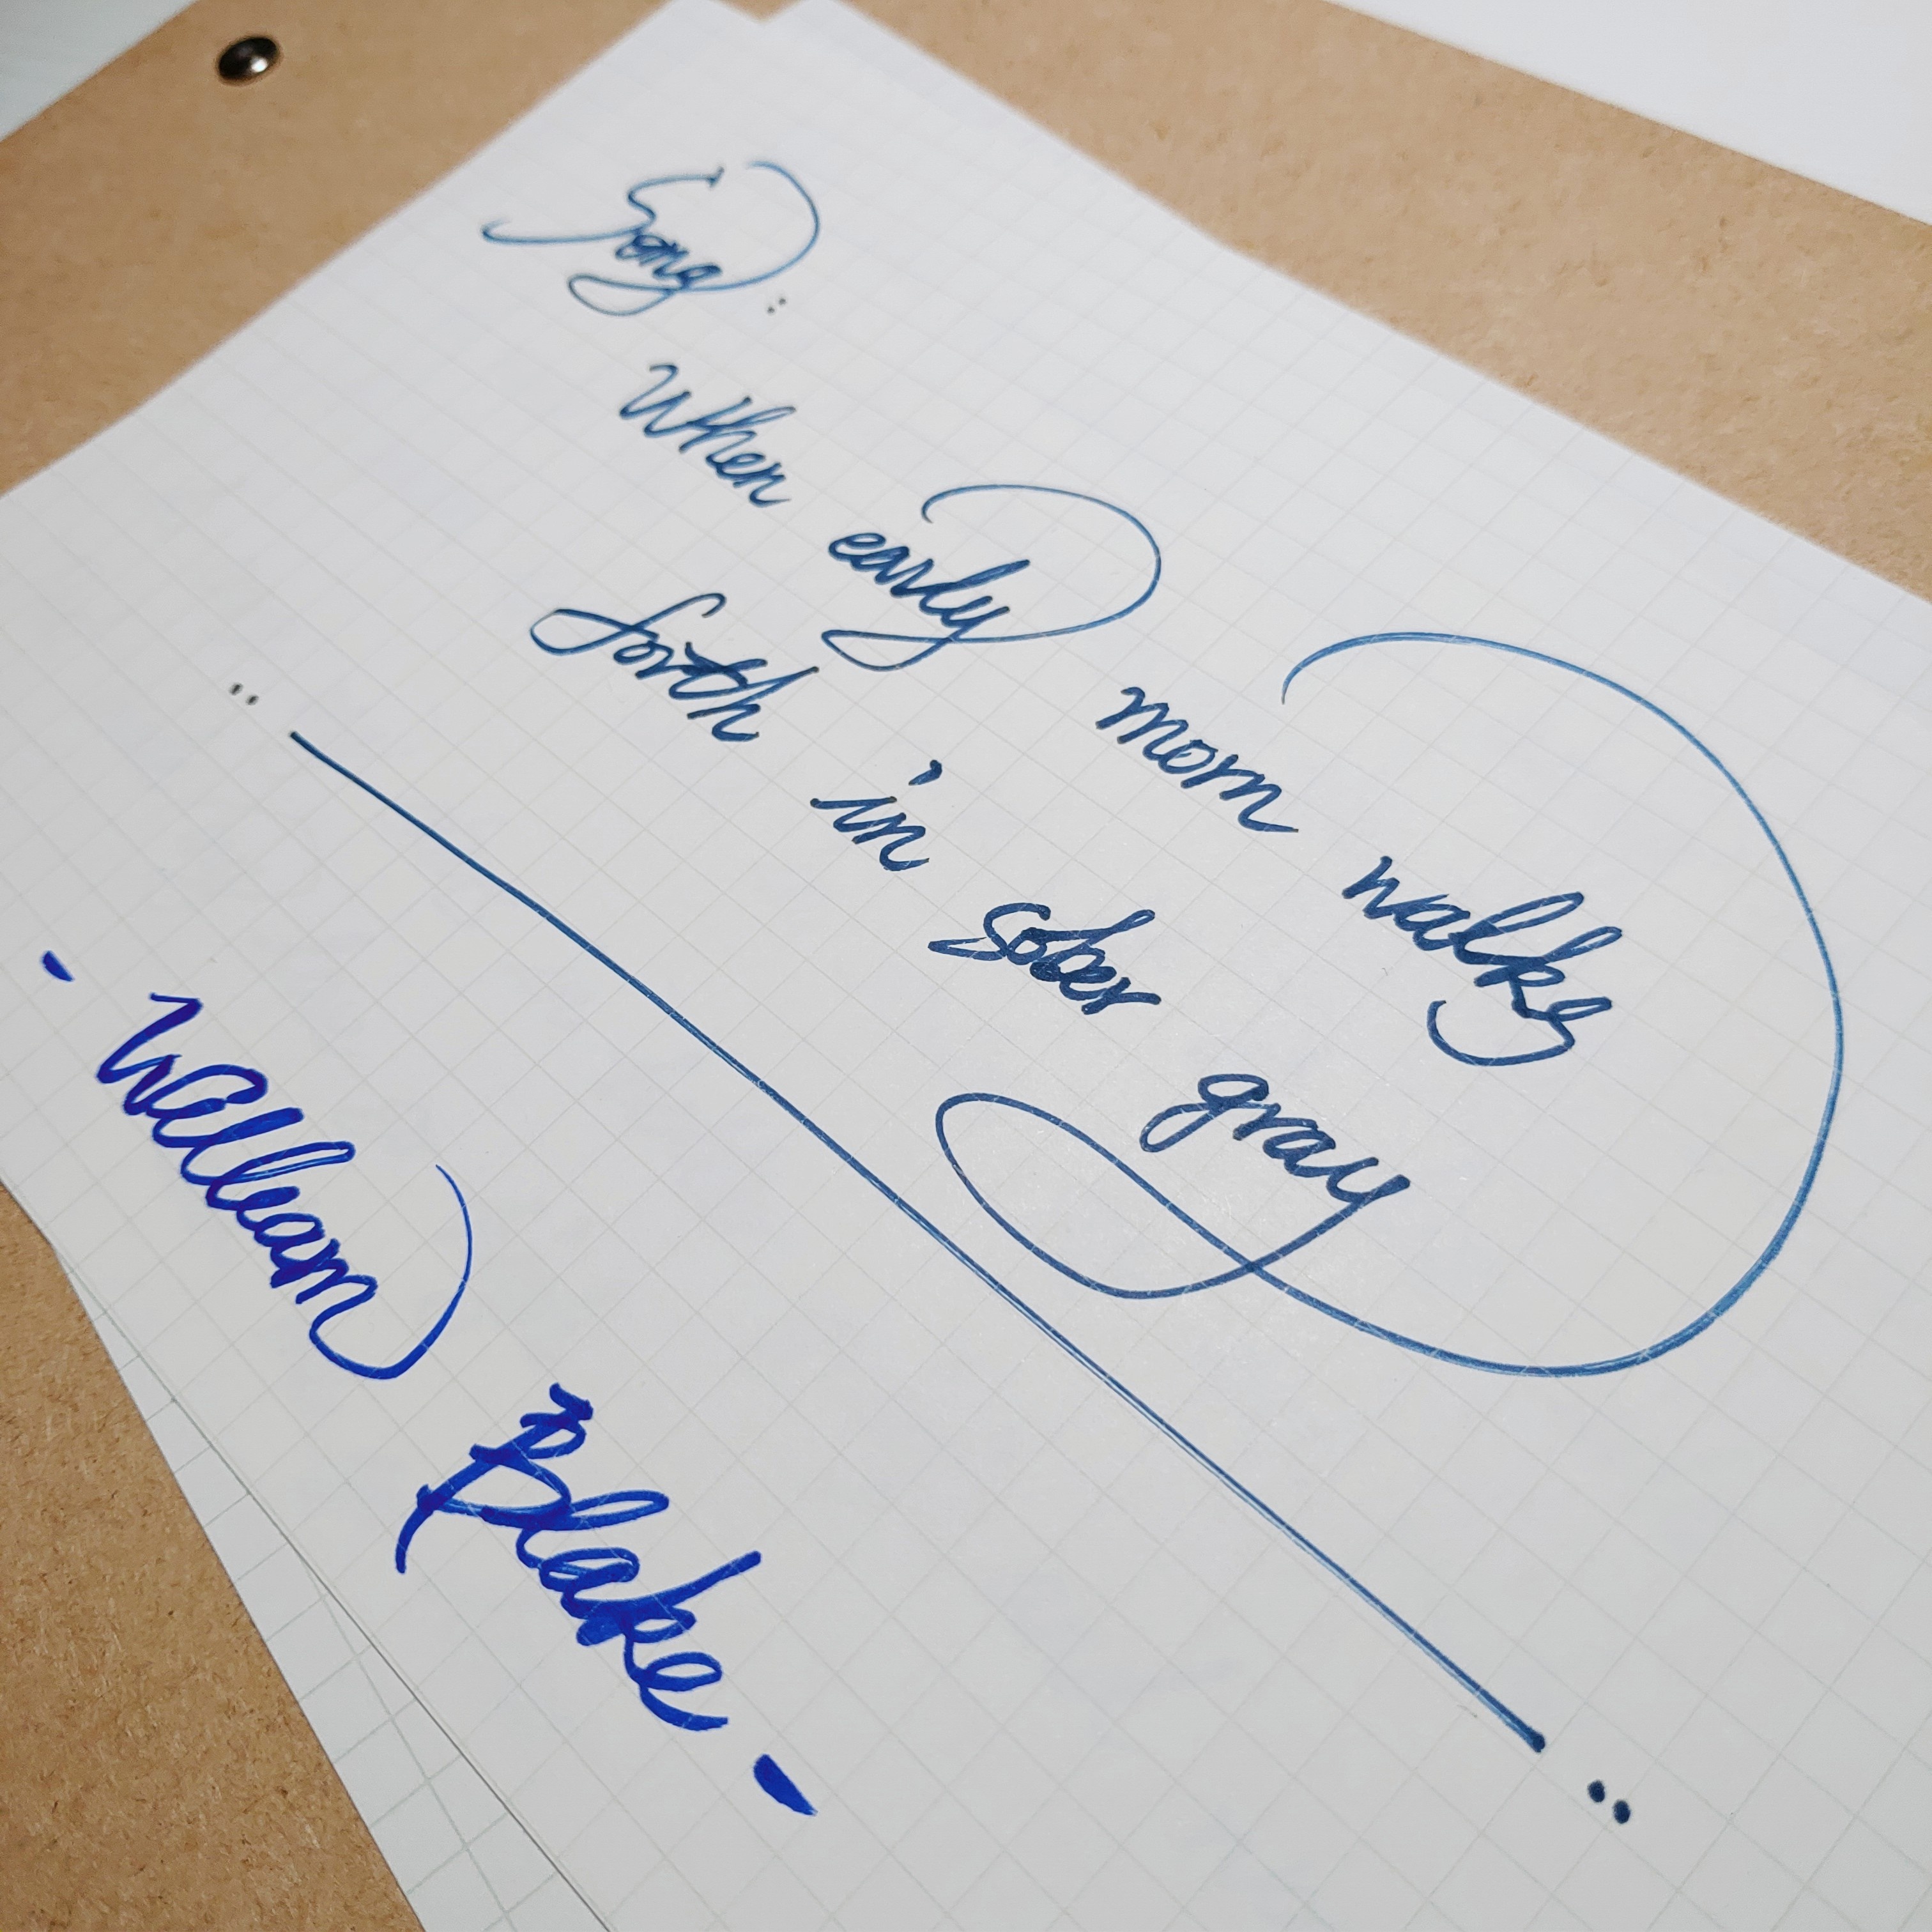 Song:
When early morn walks
forth in sober gray
- William Blake -